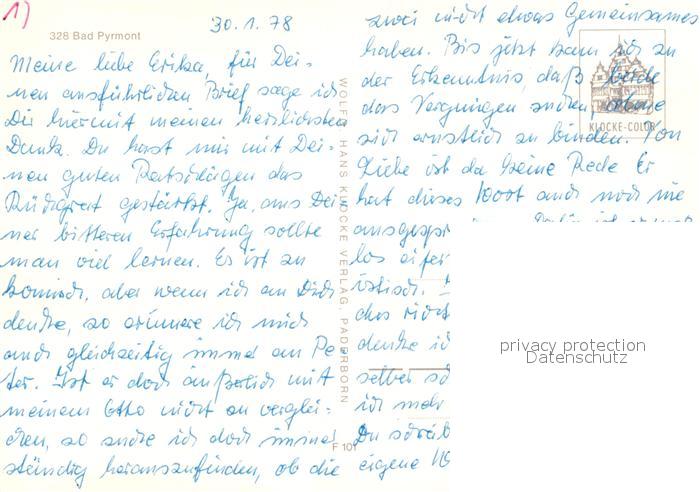 1)
30.1.78
328 Bad Pyrmont
Meine liebe Erika, für Dei-
nen ausführlichen Brief sage ich
Dir hiermit meinen herzlichsten
Dank. Du hast mir mit Dei-
nen guten Ratschlägen das
Rückgrat gestärkt. Ja, aus Dei
ner bitteren Erfahrung sollte
man viel lernen. Es ist zu
komisch, aber wenn ich an Dich
denke, so erinnere ich mich
auch gleichzeitig immer an Pe
ter. Ist er doch äußerlich mit
meinem Otto nicht zu verglei-
chen, so suche ich doch immer
ständig herauszufinden, ob die
zwei nicht etwas Gemeinsames
haben. Bis jetzt kam ich zu
der Erkenntnis, daß beide
das Vergnügen suchen, ohne
sich ernstlich zu binden. Von
Liebe ist da keine Rede Er
hat dieses Wort auch noch nie
ausgespr
los eifer
istisch.
das rich
denke ic
selber sc
ich mehr
Du schreib
eigene
WOLFGANG HANS KLOCKE VERLAG, PADERBORN
F 101
KLOCKE-COLOR
privacy protection
Datenschutz